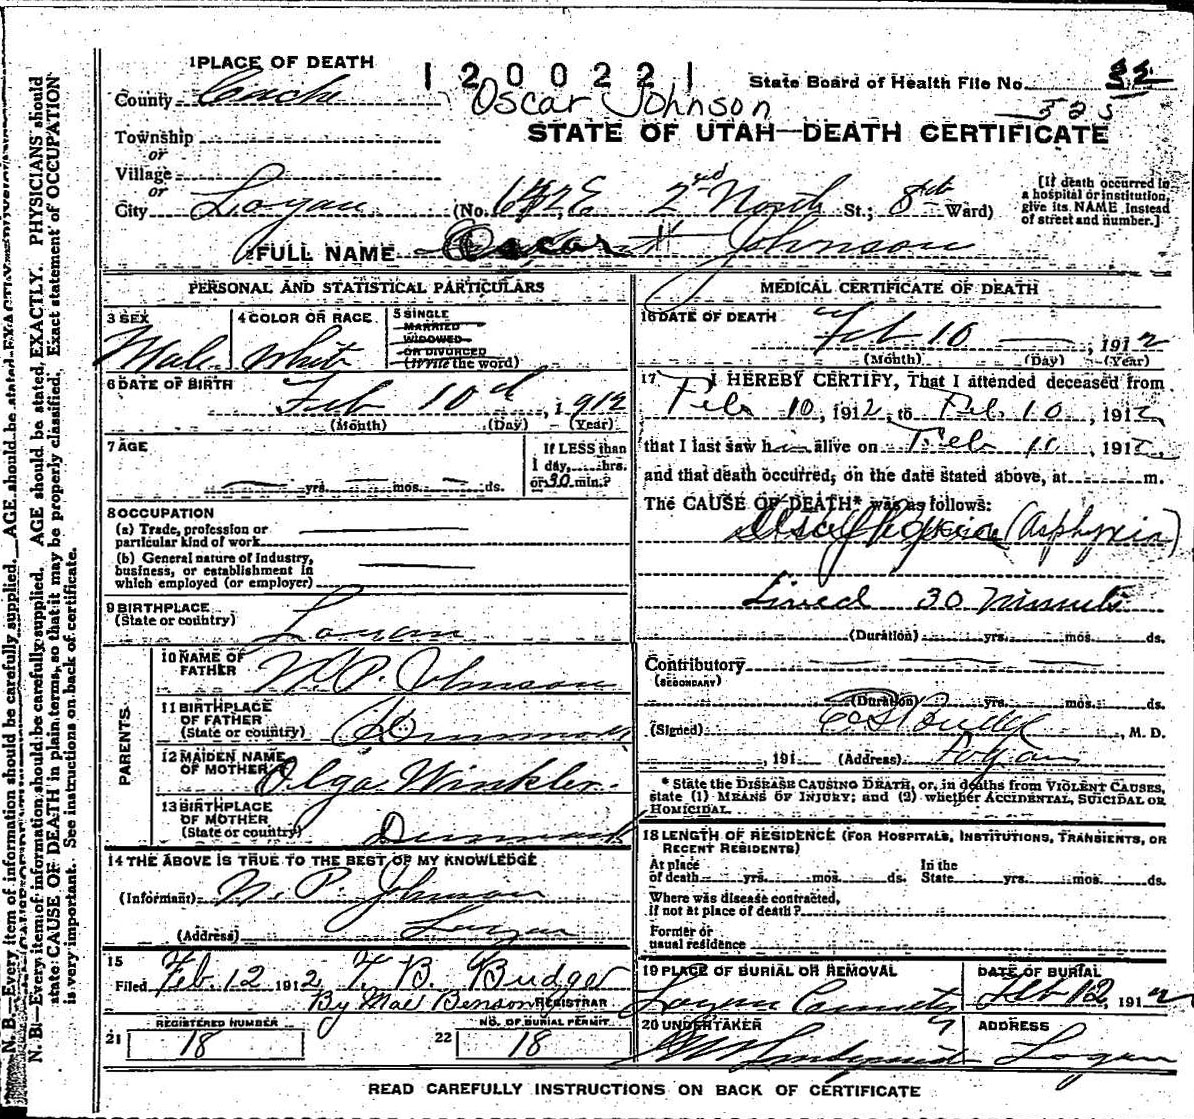 1 PLACE OF DEATH
1200221
State Board of Health File No.
County Cache
Oscar Johnson
325
STATE OF UTAH—DEATH CERTIFICATE
Township
or
Village
or
City Logan (No. E 2nd North St.; 8th Ward)
[If death occurred in a hospital or institution, give its NAME instead of street and number.]
2 FULL NAME Oscar Johnson
PERSONAL AND STATISTICAL PARTICULARS
3 SEX
Male
4 COLOR OR RACE
White
5 SINGLE
MARRIED
WIDOWED
OR DIVORCED
(Write the word)
6 DATE OF BIRTH
Feb 10th, 1912
(Month) (Day) (Year)
7 AGE
yrs. mos. ds.
If LESS than
1 day, hrs.
or 30 min.?
8 OCCUPATION
(a) Trade, profession or
particular kind of work
(b) General nature of Industry,
business, or establishment in
which employed (or employer)
9 BIRTHPLACE
(State or country) Logan
PARENTS
10 NAME OF
FATHER N. P. Johnson
11 BIRTHPLACE
OF FATHER
(State or country) Denmark
12 MAIDEN NAME
OF MOTHER Olga Winkler
13 BIRTHPLACE
OF MOTHER
(State or country) Denmark
14 THE ABOVE IS TRUE TO THE BEST OF MY KNOWLEDGE
(Informant) N. P. Johnson
(Address) Logan
15
Filed Feb. 12 1912 T. B. Budge
By Mae Benson REGISTRAR
21 REGISTERED NUMBER
18
22 NO. OF BURIAL PERMIT
18
MEDICAL CERTIFICATE OF DEATH
16 DATE OF DEATH
Feb 10, 1912
(Month) (Day) (Year)
17 I HEREBY CERTIFY, That I attended deceased from
Feb 10, 1912, to Feb. 10, 1912
that I last saw him alive on Feb 10, 1912,
and that death occurred, on the date stated above, at m.
The CAUSE OF DEATH* was as follows:
(Asphyxia)
Lived 30 Minutes
(Duration) yrs. mos. ds.
Contributory
(SECONDARY)
(Duration) yrs. mos. ds.
(Signed) Budge, M. D.
, 191 (Address) Logan
* State the DISEASE CAUSING DEATH, or, in deaths from VIOLENT CAUSES,
state (1) MEANS OF INJURY; and (2) whether ACCIDENTAL, SUICIDAL OR
HOMICIDAL.
18 LENGTH OF RESIDENCE (FOR HOSPITALS, INSTITUTIONS, TRANSIENTS, OR
RECENT RESIDENTS)
At place
of death yrs. mos. ds.
In the
State yrs. mos. ds.
Where was disease contracted,
if not at place of death?
Former or
usual residence
19 PLACE OF BURIAL OR REMOVAL
Logan
DATE OF BURIAL
Feb 12, 1912
20 UNDERTAKER
ADDRESS
Logan
READ CAREFULLY INSTRUCTIONS ON BACK OF CERTIFICATE
N. B.—Every item of information should be carefully supplied. AGE should be stated EXACTLY. PHYSICIANS should
state CAUSE OF DEATH in plain terms, so that it may be properly classified. Exact statement of OCCUPATION
is very important. See instructions on back of certificate.